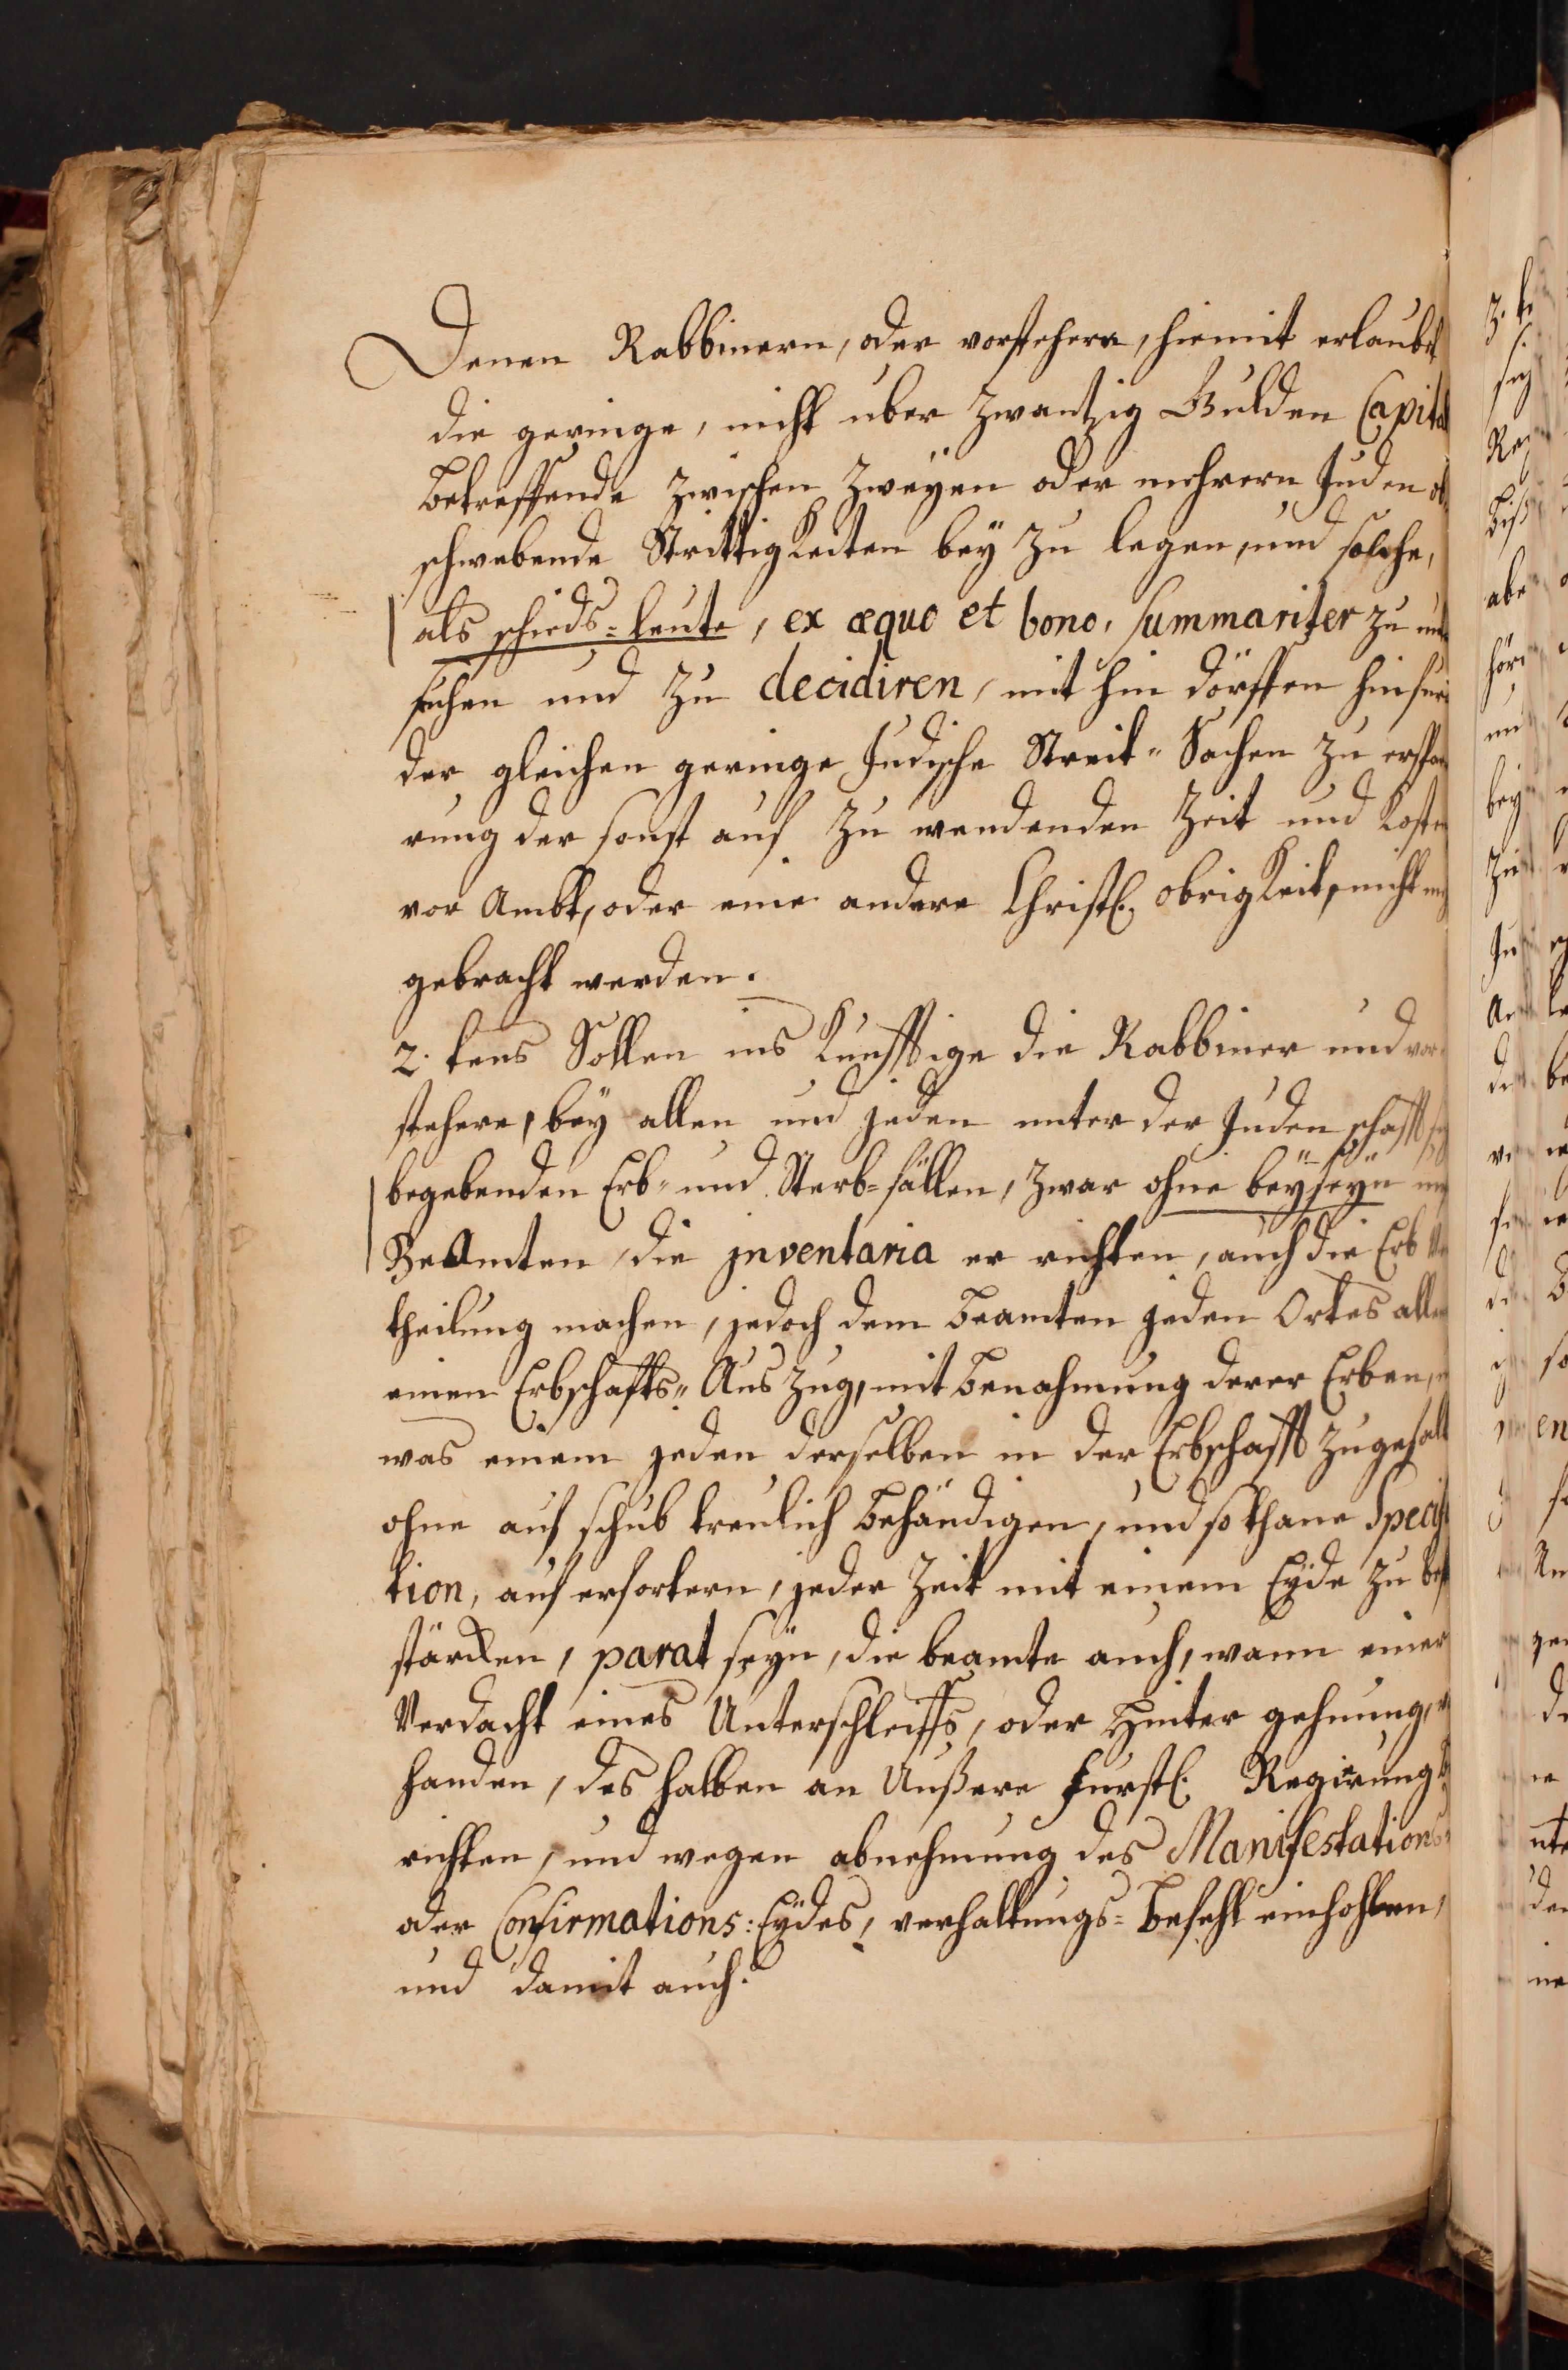 Denen Rabbinern, oder vorstehern, hiemit erlaubt
die geringe, nicht uber zwantzig Gulden Capital
betreffende zwischen zweÿen oder mehrern Juden ob
schwebende Strittigkeiten beÿ zu legen, und solche,
als schieds=leute, ex æquo et bono, summariter zu unter
suchen und zu decidiren, mit hin dörffen hinfuro
der gleichen geringe Judische Streit=Sachen zu erspa
rung der sonst auf zu wendenden Zeit und Kosten
vor Ambt, oder eine andere Christl. obrigkeit, nicht mehr
gebracht werden.
2.tens Sollen ins Kunfftige die Rabbiner und vor
stehere, beÿ allen und jeden unter der Juden schafft sich
begebenden Erb= und Sterb=fällen, zwar ohne beÿseÿn
BeAmten, die jnventaria er richten, auch die Erb
theilung machen, jedoch dem beamten jeden Ortes
einen Erbschaffts=Aus zug, mit benahmung derer Erben,
was einem jeden derselben in der Erbschafft zugefall
ohne auf schub treulich behändigen, und so thane Specifi
tion, auf erfortern, jeder Zeit mit einem Eÿde zu be
stärcken, parat seÿn, die beamte auch, wann einer
Verdacht eines Unterschleiffs, oder Hinter gehunng,
handen, des halben an Unßere furstl. Regirung
richten, und wegen abnehmung des Manifestations=
oder Confirmations=Eÿdes, verhaltungs=befehl einhohlen,
und damit auch.